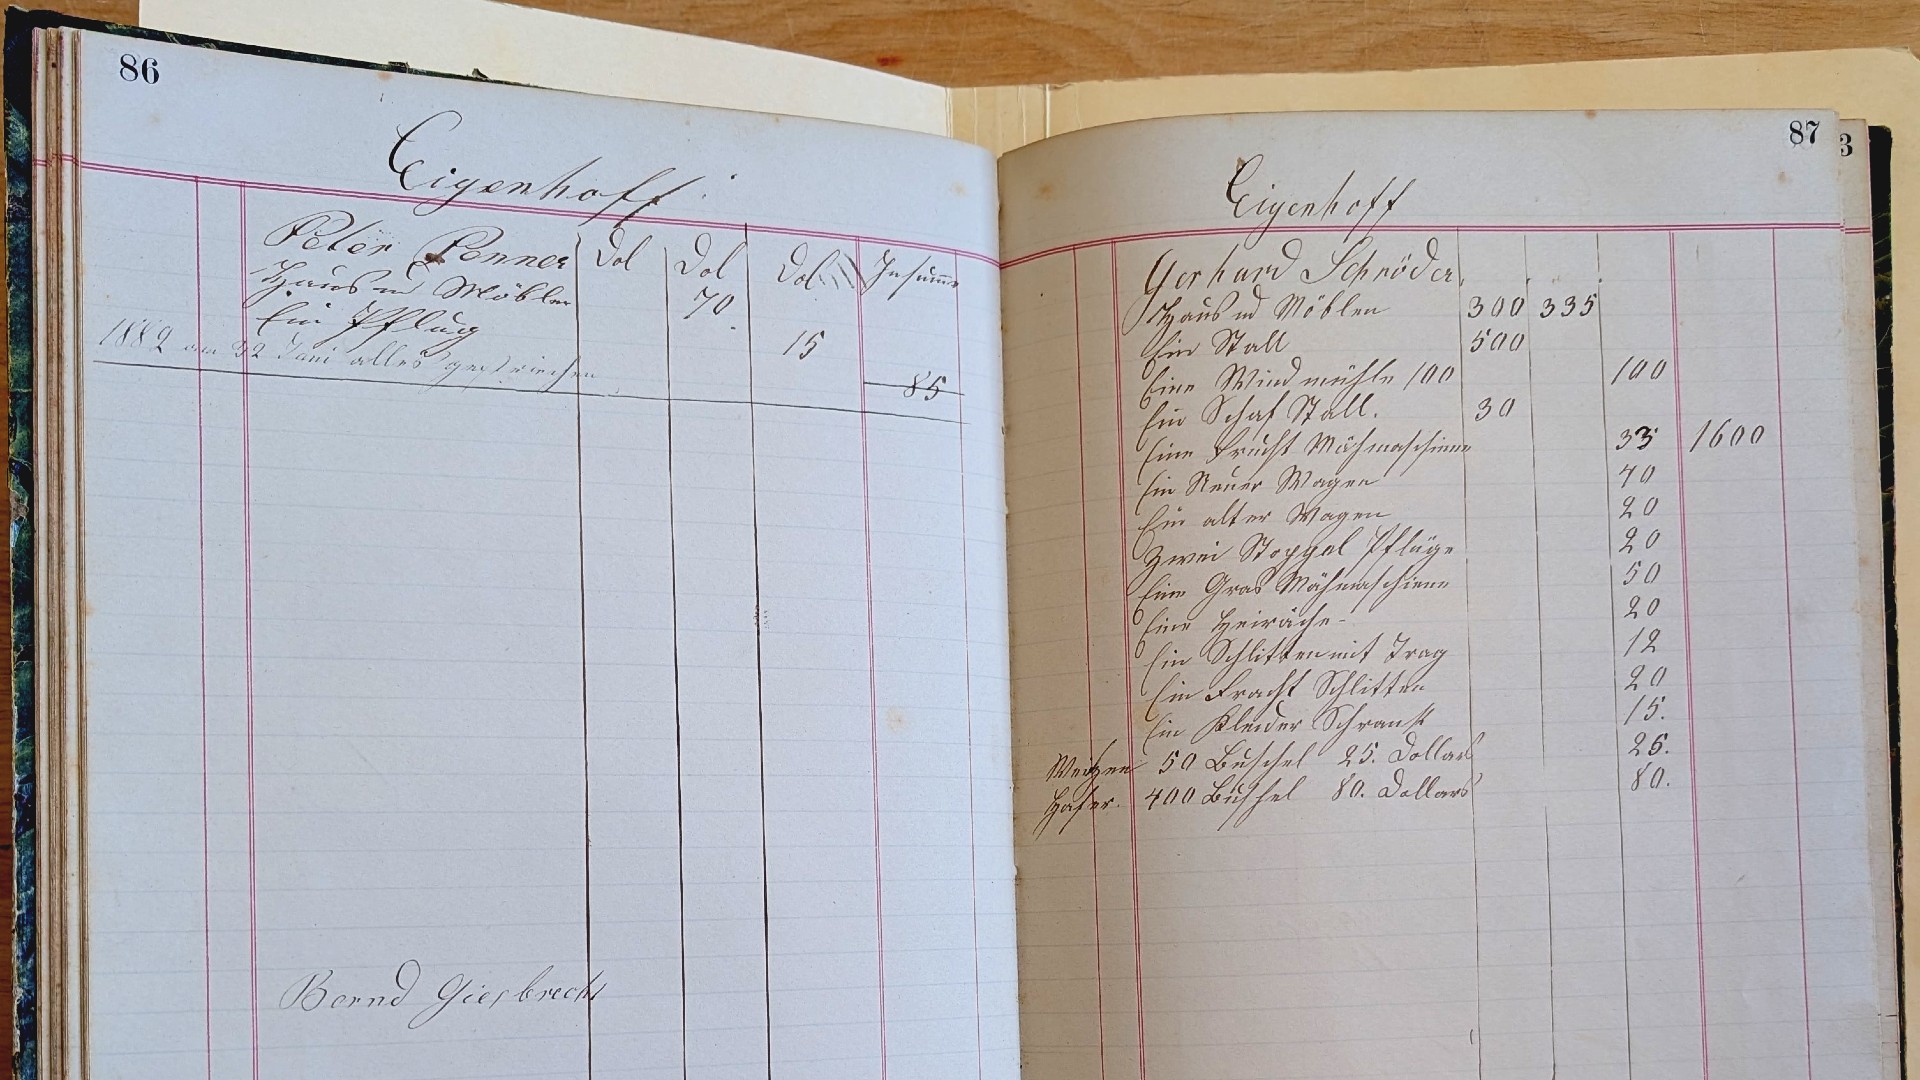 86
Eigenhoff
Peter Penner Dol Dol Dol Insumme
Haus u Möblen 70
Ein Pflug 15
1882 am 22 Juni alles gestrichen
85
Bernd Giesbrecht
87
3
Eigenhoff
Gerhard Schröder
Haus u Möblen 300 335
Ein Stall 500
Eine Windmühle 100 100
Ein Schaf Stall. 30
Eine Frucht Mähmaschiene 1600
Ein Neuer Wagen 40
Ein alter Wagen 20
Zwei Stoppel Pflüge 20
Eine Gras Mähmaschiene 50
Eine Heiräche 20
Ein Schlitten mit Trag 12
Ein Fracht Schlitten 20
Ein Kleider Schrank 15.
Weitzen 50 Buschel 25. Dollars 25.
Hafer. 400 Buschel 80. Dollars 80.